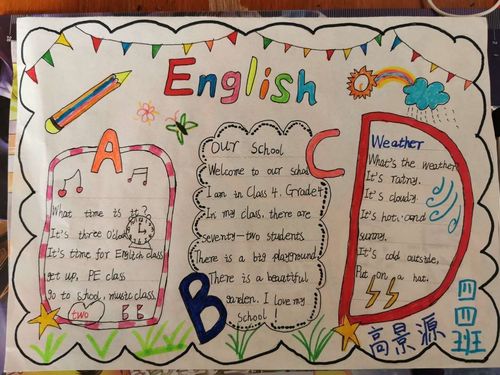 English
A
What time is it?
It's three O'clock
It's time for English class
get up, PE class
Go to school, music class
two
B
OUR SChool
Welcome to our school
I am in Class 4. Grade4
In my class, there are
seventy-two students
There is a big playground
There is a beautiful
garden. I love my
school!
C
D
Weather
What's the weather?
It's rainy.
It's cloudy.
It's hot and
sunny.
It's cold outside,
Put on a hat.
高景源
四
四
班